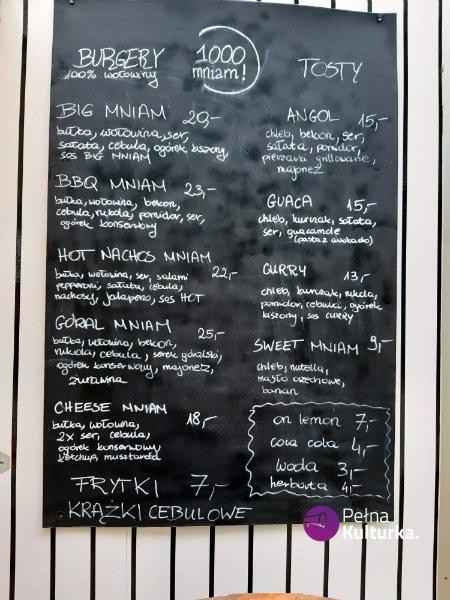 BURGERY
100% wołowiny
1000
mniam!
TOSTY
BIG MNIAM 20,-
bułka, wołowina, ser,
sałata, cebula, ogórek kiszony,
sos BIG MNIAM
BBQ MNIAM 23,-
bułka, wołowina, bekon,
cebula, rukola, pomidor, ser,
ogórek konserwowy
HOT NACHOS MNIAM 22,-
bułka, wołowina, ser, salami
pepperoni, sałata, cebula,
nachosy, jalapeno, sos HOT
GÓRAL MNIAM 25,-
bułka, wołowina, bekon,
rukola, cebula, serek góralski,
ogórek konserwowy, majonez,
żurawina
CHEESE MNIAM 18,-
bułka, wołowina,
2x ser, cebula,
ogórek konserwowy
ketchup, musztarda
FRYTKI 7,-
KRĄŻKI CEBULOWE
ANGOL 15,-
chleb, bekon, ser,
sałata, pomidor,
pieczarki grillowane,
majonez
GUACA 15,-
chleb, kurczak, sałata,
ser, guacamole
(pasta z awokado)
CURRY 13,-
chleb, kurczak, rukola,
pomidor, cebula, ogórek
kiszony, sos CURRY
SWEET MNIAM 9,-
chleb, nutella,
masło orzechowe,
banan
on lemon 7,-
coca cola 4,-
woda 3,-
herbata 4,-
Pełna
Kulturka.